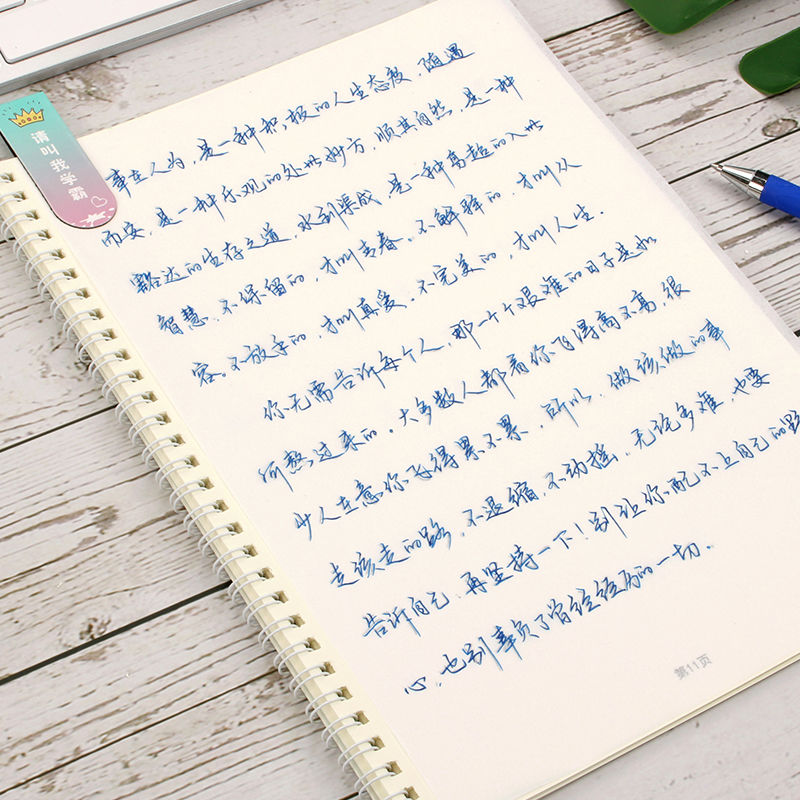 请叫我学霸
事在人为,是一种积极的人生态度,随遇
而安,是一种乐观的处世妙方,顺其自然,是一种
豁达的生存之道,水到渠成,是一种高超的入世
智慧,不保留的,才叫青春。不解释的,才叫从
容。不放手的,才叫真爱。不完美的,才叫人生.
你无需告诉每个人,那一个个艰难的日子是如
何熬过来的。大多数人都看你飞得高不高,很
少人在意你飞得累不累,所以,做该做的事
走该走的路,不退缩,不动摇,无论多难,也要
告诉自己,再坚持一下!别让你配不上自己的野
心,也别辜负了曾经经历的一切.
第11页